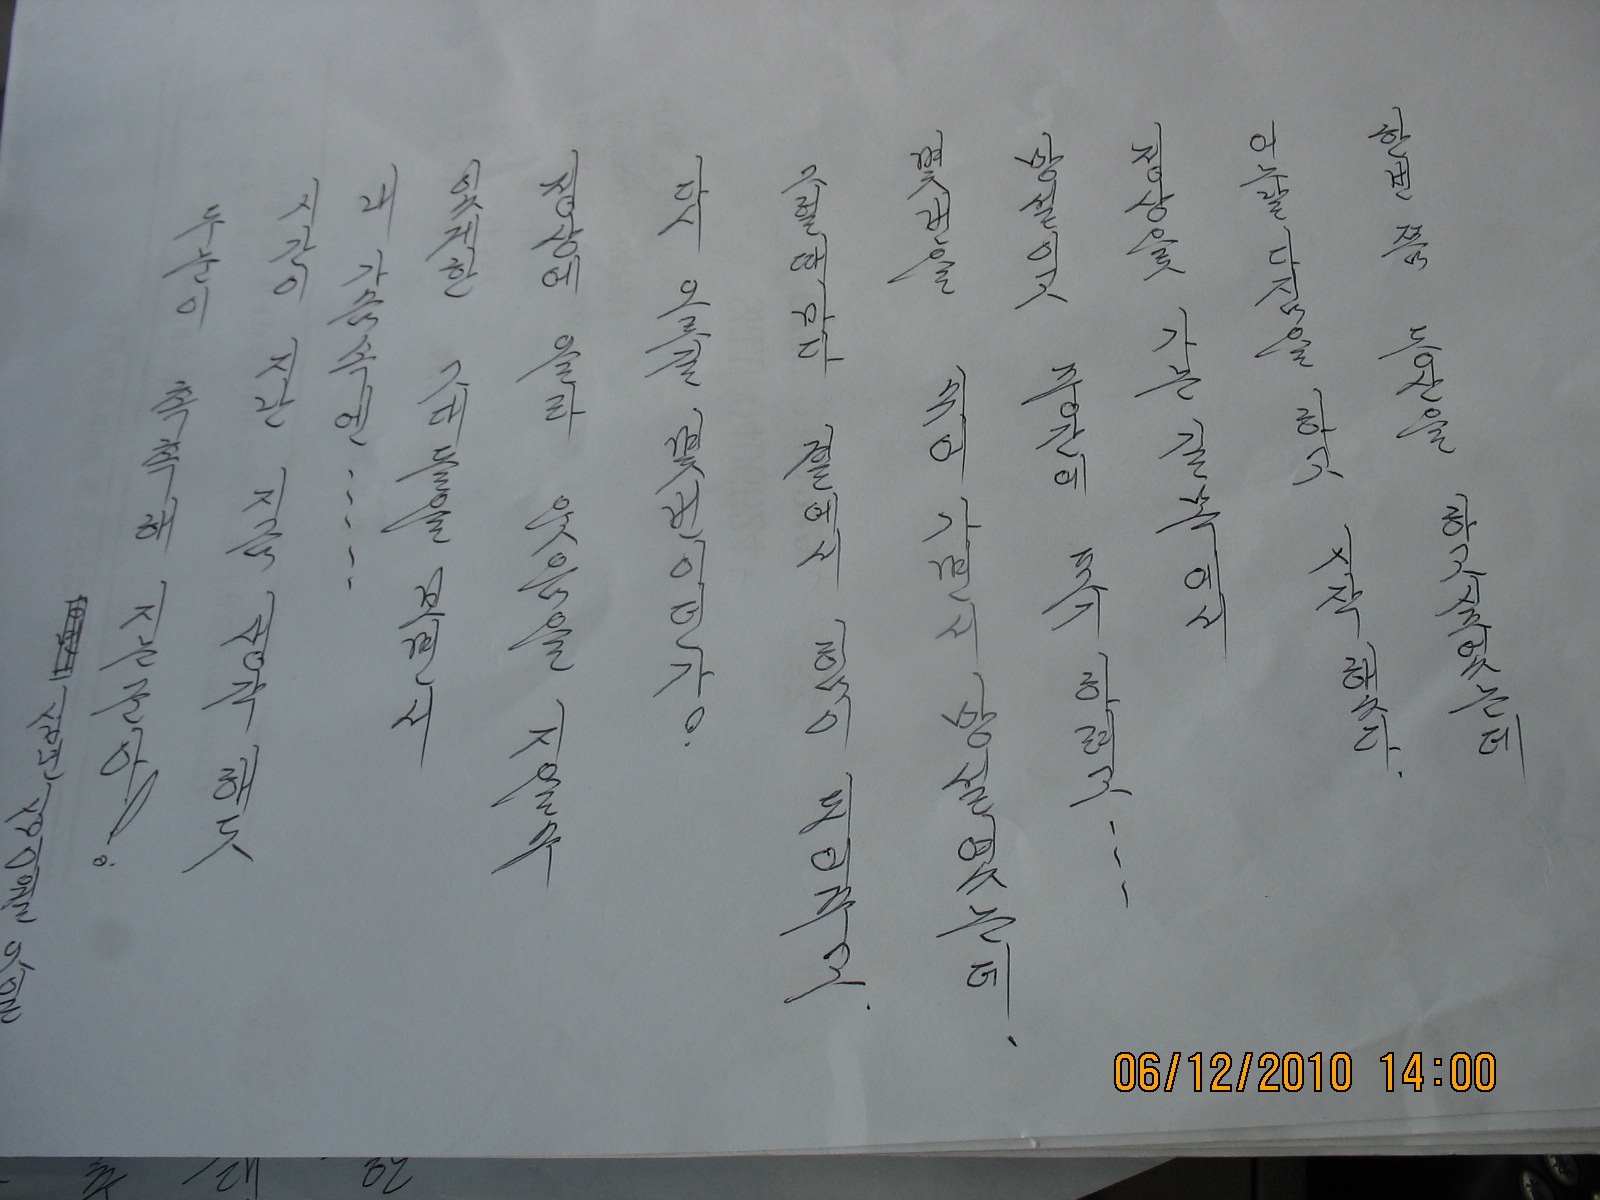 한번쯤 등산을 하고 싶었는데
오늘날 다짐을 하고 시작 했다.
정상을 가는 길목에서
망설이고 주간의 폭주 하려고----
몇번을 속에 가면서 망설였는데.
그럴때마다 곁에서 힘이 되어주고.
다시 오를길 몇번이던가.
정상에 올라 웃음을 지을수
있게한 그대들을 보면서
내 가슴속엔----
시간이 지난 지금 생각해도
두눈이 촉촉해 지는군아!
06/12/2010 14:00